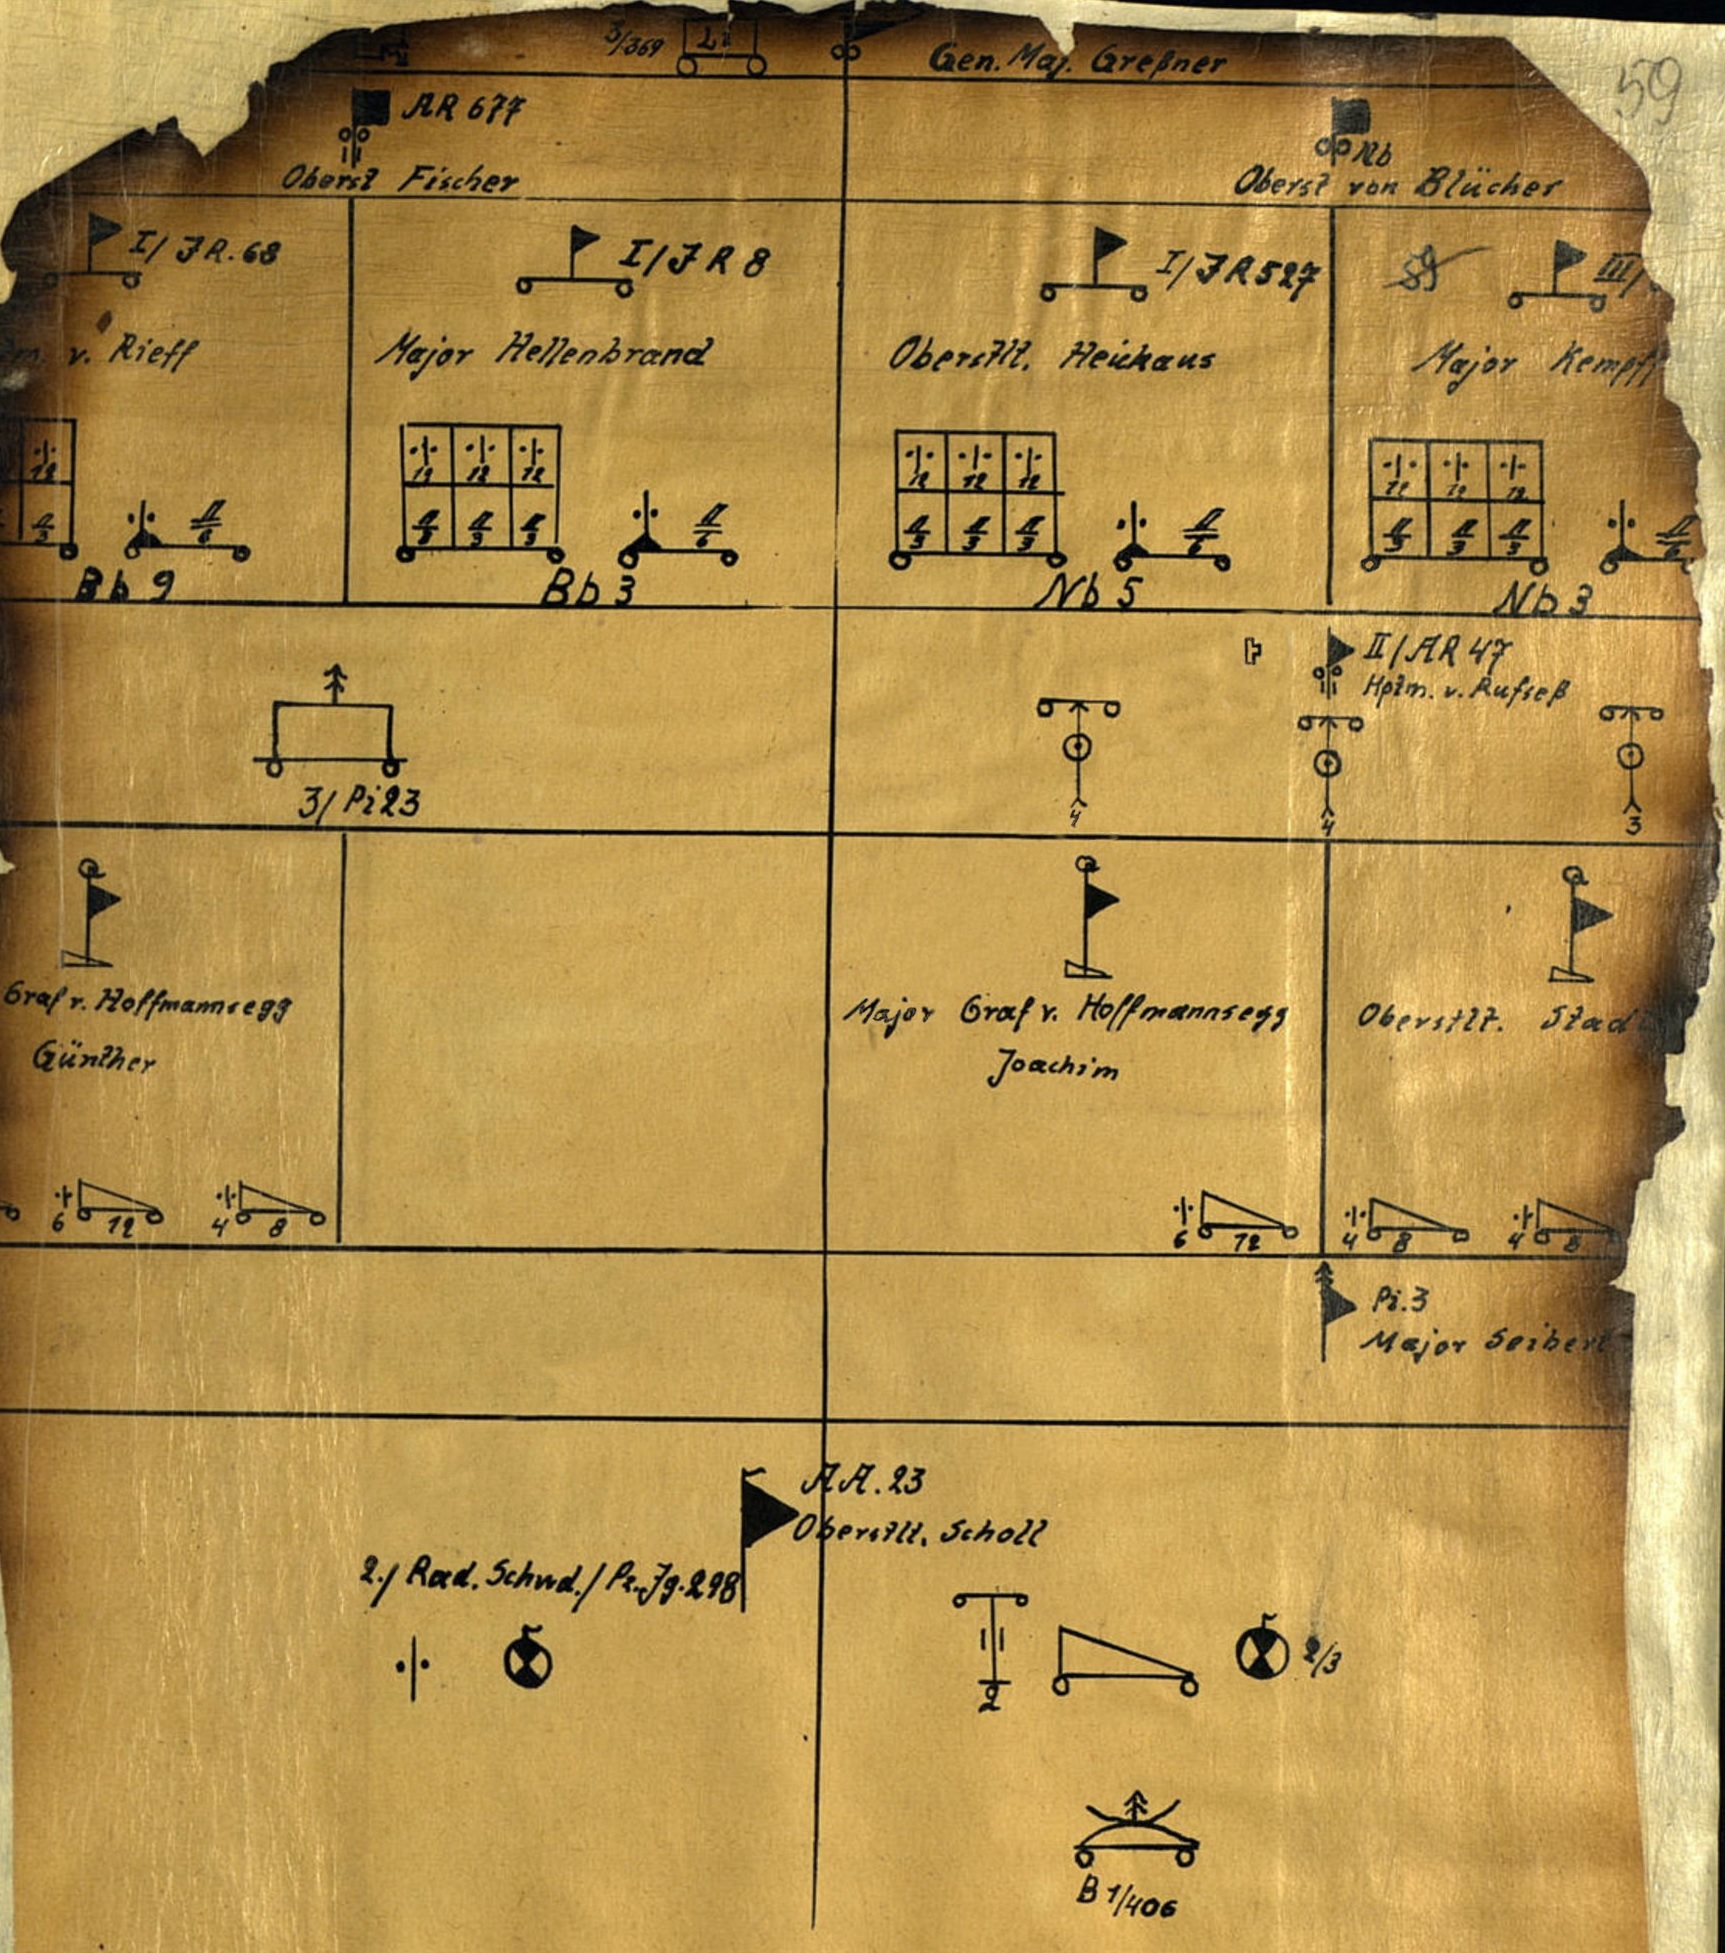 3/369
Gen. Maj. Greßner
59
AR 677
Nb
Oberst Fischer
Oberst von Blücher
I/ JR. 68
I/ JR 8
I/ JR 527
59
III/
v. Rieff
Major Hellenbrand
Oberstlt. Heickaus
Major Kempf
12
12 12 12
12 12 12
12 12 12
3
II/6
3 3 3
II/6
3 3 3
II/6
3 3 3
II/6
Bb 9
Bb 3
Nb 5
Nb 3
II/AR 47
Hptm. v. Rufseß
3/ Pi 23
4
4
3
Graf v. Hoffmannsegg
Günther
Major Graf v. Hoffmannsegg
Joachim
Oberstlt. Stad
6 12
4 8
6 12
4 8
4 8
Pi. 3
Major Seibert
AA. 23
Oberstlt. Scholl
2./ Rad. Schwd./ Pz. Jg. 298
2
2/3
B 1/406